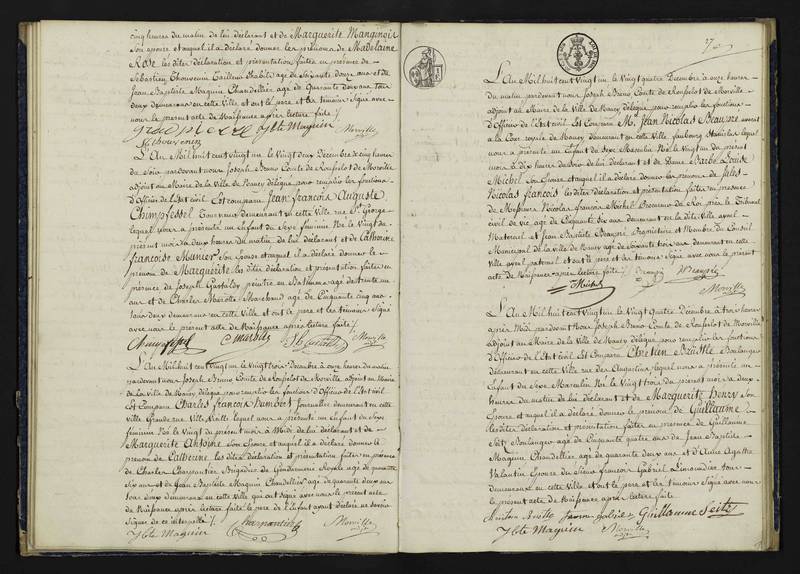 cinq heures du matin de lui déclarant et de Marguerite Manginois
Son épouse et auquel il a déclaré donner les prénoms de Madelaine
Rose les dites déclaration et présentation faites en présence de
Sébastien Thouvenin Tailleur d'habits agé de Soixante douze ans et de
Jean Baptiste Maquin Chandellier agé de Quarante deux ans tous
deux demeurans en cette ville et ont le père et les témoins Signé avec
nous le présent acte de Naissance après lecture faite
Jbte Maquin Morville
S thouvenin
L'An Mil huit cent vingt un le Vingt deux Décembre à cinq heures
du Soir pardevant nous Joseph Bruno Comte de Morville
adjoint au Maire de la Ville de Nancy délégué pour remplir les fonctions
d'Officier de l'Etat civil Est comparu Jean François Auguste
Chimpfessel demeurant en cette Ville rue St George
lequel nous a présenté un Enfant du Sexe féminin Né le Vingt du
présent mois à deux heures du matin de lui déclarant et de Catherine
françoise Munier Son épouse et auquel il a déclaré donner le
prénom de Marguerite les dites déclaration et présentation faites en
présence de Joseph peintre en Batimens agé de trente un
ans et de Charles Marchand agé de Cinquante cinq ans
tous deux demeurans en cette Ville et ont le père et les témoins Signé
avec nous le présent acte de Naissance après lecture faite
Morville
L'An Mil huit cent Vingt un le Vingt trois Décembre à onze heures du matin
pardevant nous Joseph Bruno Comte de Morville adjoint au Maire
de la Ville de Nancy délégué pour remplir les fonctions d'Officier de l'Etat civil
Est Comparu Charles françois Humbert Journalier demeurant en cette
Ville Grande rue Ville Vieille lequel nous a présenté un Enfant du Sexe
féminin Né le Vingt du présent mois à Midi de lui déclarant et de
Marguerite Antoine Son épouse et auquel il a déclaré donner le
prénom de Catherine les dites déclaration et présentation faites en présence
de Charles Charpentier Brigadier de Gendarmerie Royale agé de quarante
Six ans et de Jean Baptiste Maquin Chandellier agé de quarante deux ans
tous deux demeurans en cette Ville qui ont Signé avec nous le présent acte
de Naissance après lecture faite le père de l'Enfant ayant déclaré ne Savoir
Signer de ce interpellé
Charpentier Morville
Jbte Maquin
L'An Mil huit cent Vingt un le Vingt quatre Décembre à onze heures
du matin pardevant nous Joseph Bruno Comte de Morville
adjoint au Maire de la Ville de Nancy délégué pour remplir les fonctions
d'Officier de l'Etat civil Est Comparu Mr Jean Nicolas avocat
à la Cour royale de Nancy demeurant en cette Ville faubourg Stanislas lequel
nous a présenté un Enfant du Sexe Masculin Né le Vingt un du présent
mois à dix heures du Soir de lui déclarant et de Dame Barbe Louise
Michel Son épouse et auquel il a déclaré donner les prénoms de Jules
Nicolas françois les dites déclaration et présentation faites en présence
de Messieurs Nicolas françois Michel Procureur du Roi près le Tribunal
civil de Vic agé de Cinquante Six ans demeurant en cette Ville ayeul
Maternel et Jean Baptiste Propriétaire et Membre du Conseil
Municipal de la Ville de Nancy agé de Soixante trois ans demeurant en cette
Ville ayeul paternel et ont le père et les témoins Signé avec nous le présent
acte de Naissance après lecture faite
Michel Morville
L'An Mil huit cent Vingt un le Vingt Quatre Décembre à trois heures
après Midi pardevant nous Joseph Bruno Comte de Morville
adjoint au Maire de la Ville de Nancy délégué pour remplir les fonctions
d'Officier de l'Etat civil Est Comparu Chrétien Boulanger
demeurant en cette Ville rue des Augustins lequel nous a présenté un
Enfant du Sexe Masculin Né le Vingt trois du présent mois à deux
heures du matin de lui déclarant et de Marguerite Henry Son
épouse et auquel il a déclaré donner le prénom de Guillaume
les dites déclaration et présentation faites en présence de Guillaume
Seitz Boulanger agé de Cinquante quatre ans de Jean Baptiste
Maquin Chandellier agé de quarante deux ans et d'Anne Agathe
Valentin Epouse du Sieur françois Gabriel tous
demeurans en cette Ville et ont le père et les témoins Signé avec nous
le présent acte de Naissance après lecture faite
Guillaume Seitz
Jbte Maquin Morville